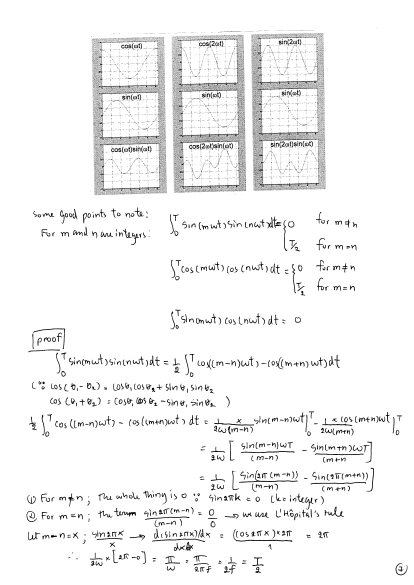 cos(ωt) cos(2ωt) sin(2ωt)
sin(ωt) sin(ωt) sin(ωt)
cos(ωt)sin(ωt) cos(2ωt)sin(ωt) sin(2ωt)sin(ωt)
Some good points to note:
For m and n are integers:
∫₀ᵀ sin(mωt) sin(nωt) dt = { 0 for m≠n
T/2 for m=n
∫₀ᵀ cos(mωt) cos(nωt) dt = { 0 for m≠n
T/2 for m=n
∫₀ᵀ sin(mωt) cos(nωt) dt = 0
proof
∫₀ᵀ sin(mωt) sin(nωt) dt = 1/2 ∫₀ᵀ cos((m-n)ωt) - cos((m+n)ωt) dt
(∵ cos(θ₁-θ₂) = cosθ₁ cosθ₂ + sinθ₁ sinθ₂
cos(θ₁+θ₂) = cosθ₁ cosθ₂ - sinθ₁ sinθ₂ )
1/2 ∫₀ᵀ cos((m-n)ωt) - cos((m+n)ωt) dt = 1/2ω(m-n) × sin(m-n)ωt |₀ᵀ - 1 × cos(m+n)ωt / 2ω(m+n) |₀ᵀ
= 1/2ω [ sin(m-n)ωT/(m-n) - sin(m+n)ωT/(m+n ]
= 1/2ω [ sin(2π(m-n))/(m-n) - sin(2π(m+n))/(m+n) ]
① For m≠n ; The whole thing is 0 ∵ sin2πk = 0 (k=integer)
② For m=n ; the term sin2π(m-n)/(m-n) = 0/0 → we use L'Hôpital's rule
Let m-n=x ; sin2πx/x → d(sin2πx)/dx / dx/dx = (cos2πx)×2π/1 = 2π
∴ 1/2ω × [2π-0] = π/ω = π/2πf = 1/2f = T/2
②